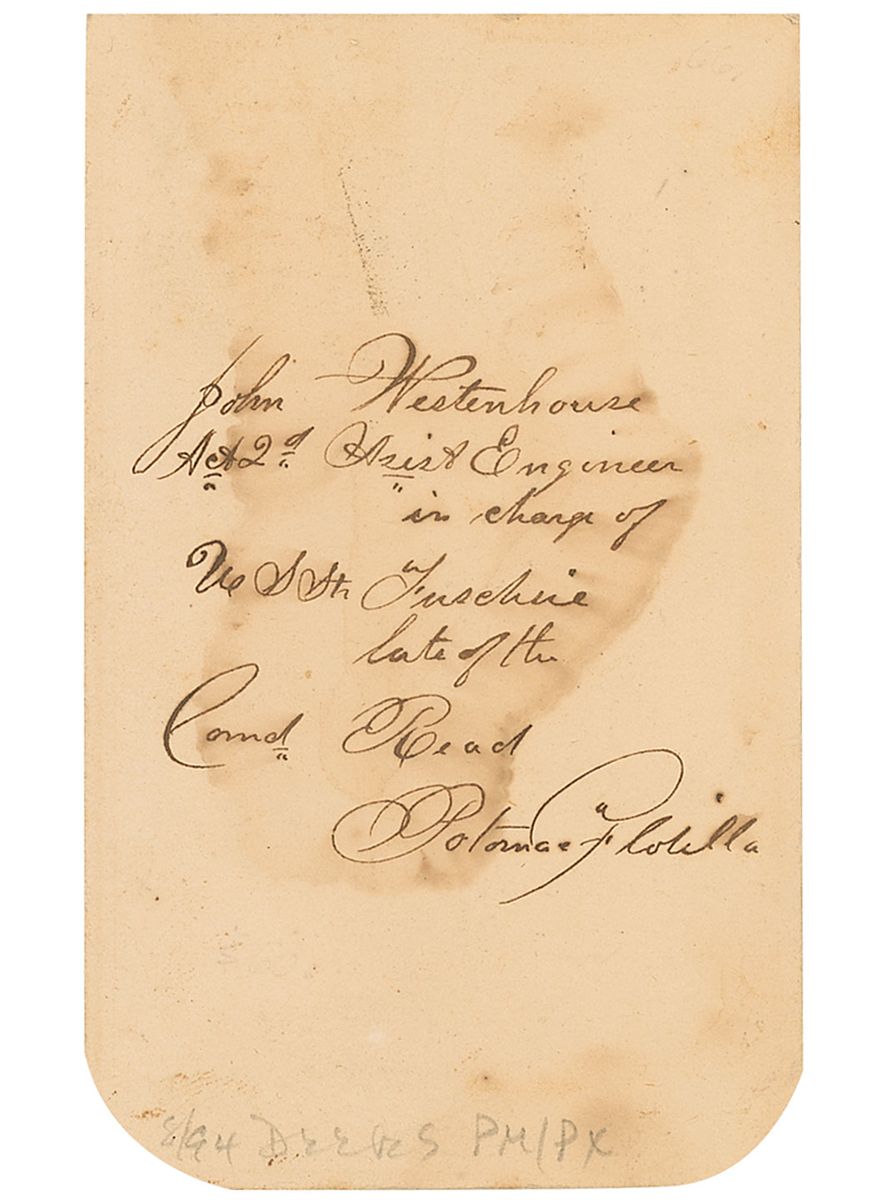 John Westenhouse
Act 2d Asist Engineer
in charge of
U S Str Fuschie
late of the
Comd Read
Potomac Flotilla
8/94 PM/PX